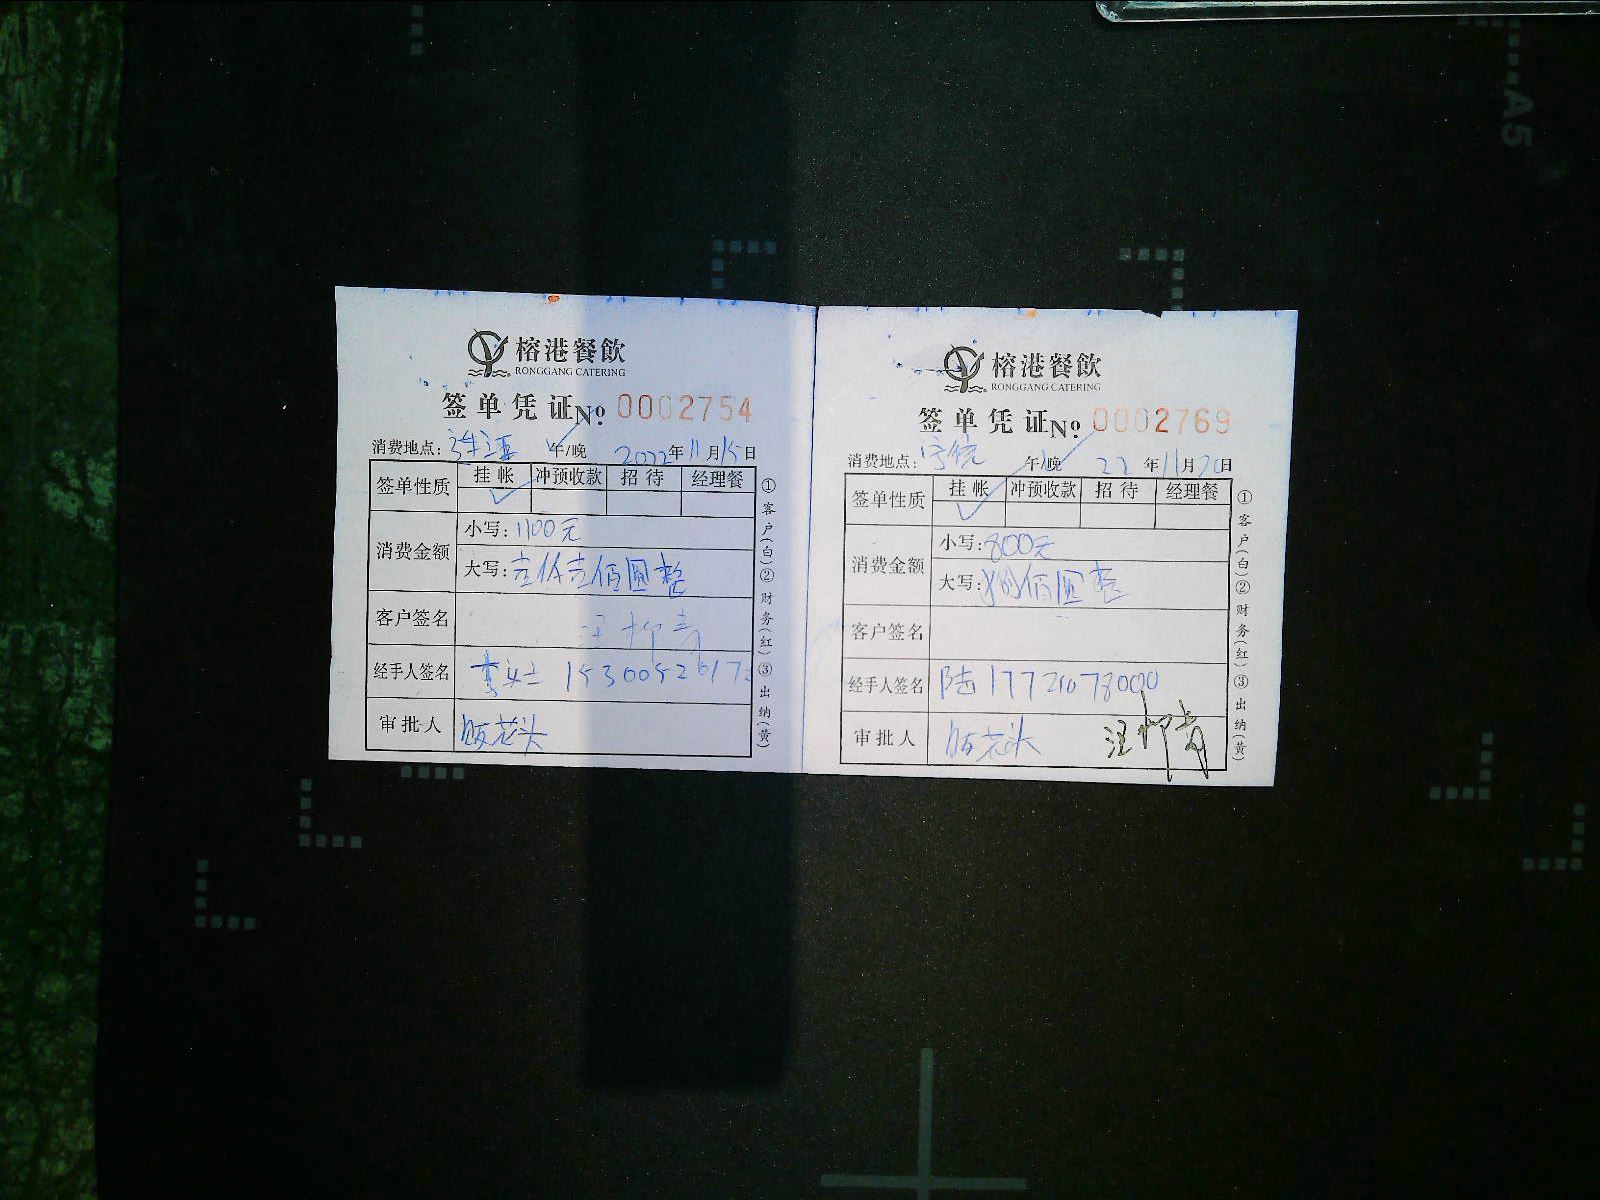 榕港餐飲
RONGGANG CATERING
签单凭证 No. 0002754
消费地点: 午/晚 2022年11月15日
签单性质 挂帐 冲预收款 招待 经理餐
✓
消费金额
小写: 1100元
大写: 壹仟壹佰圆整
客户签名 汪柳青
经手人签名 李女士
审批人
①客户(白)②财务(红)③出纳(黄)
榕港餐飲
RONGGANG CATERING
签单凭证 No. 0002769
消费地点: 午/晚 22年11月20日
签单性质 挂帐 冲预收款 招待 经理餐
✓
消费金额
小写: 800元
大写: 捌佰圆整
客户签名
经手人签名 陆
审批人 汪柳青
①客户(白)②财务(红)③出纳(黄)
A5